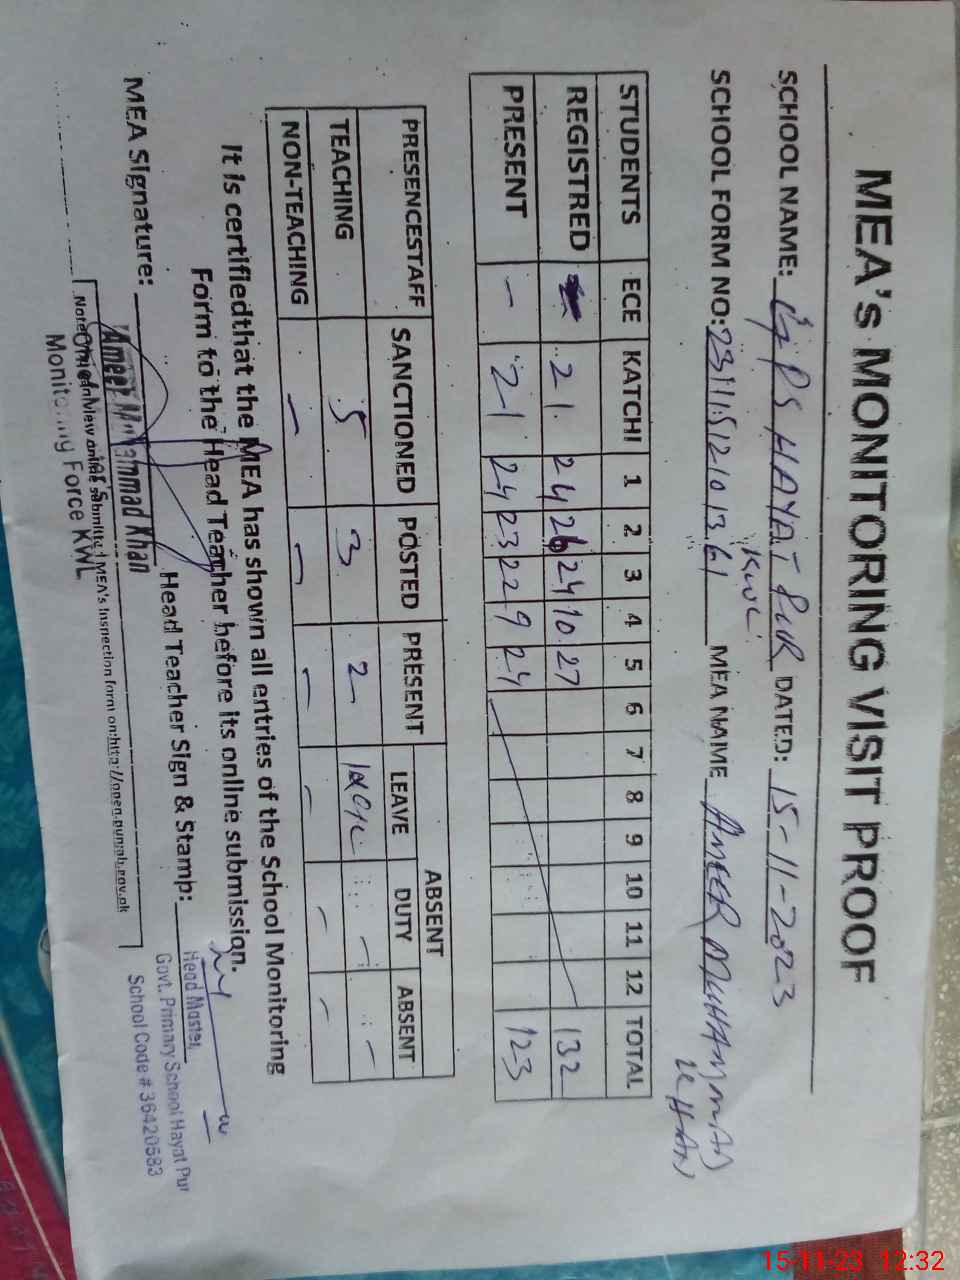 MEA's MONITORING VISIT PROOF
SCHOOL NAME: GPS HAYAT PUR DATED: 15-11-2023
KWL
SCHOOL FORM NO: 23111512101361 MEA NAME AMEER MUHAMMAD
KHAN
STUDENTS ECE KATCHI 1 2 3 4 5 6 7 8 9 10 11 12 TOTAL
REGISTRED 21 24 26 24 10 27 132
PRESENT - 21 24 23 22 9 24 123
PRESENCESTAFF SANCTIONED POSTED PRESENT ABSENT
LEAVE DUTY ABSENT
TEACHING 5 3 2 - -
NON-TEACHING - - - - - -
It is certifiedthat the MEA has shown all entries of the School Monitoring
Form to the Head Teacher before its online submission.
MEA Signature: Head Teacher Sign & Stamp:
Head Master,
Govt. Primary School Hayat Pur
School Code # 36420583
Ameer Muhammad Khan
Monitoring Force KWL
Note: submitted MEA's Inspection form on:http://open.punjab.gov.pk
15-11-23 12:32